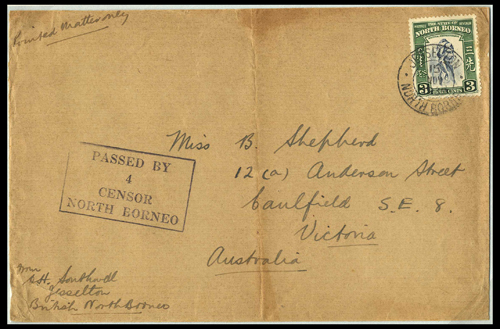 Printed Matter only
THE STATE OF
NORTH BORNEO
3 THREE CENTS 3
JESSELTON
NORTH BORNEO
Miss B. Shepherd
12(a) Anderson Street
Caulfield S.E. 8.
Victoria
Australia
PASSED BY
4
CENSOR
NORTH BORNEO
from
Jesselton
British North Borneo